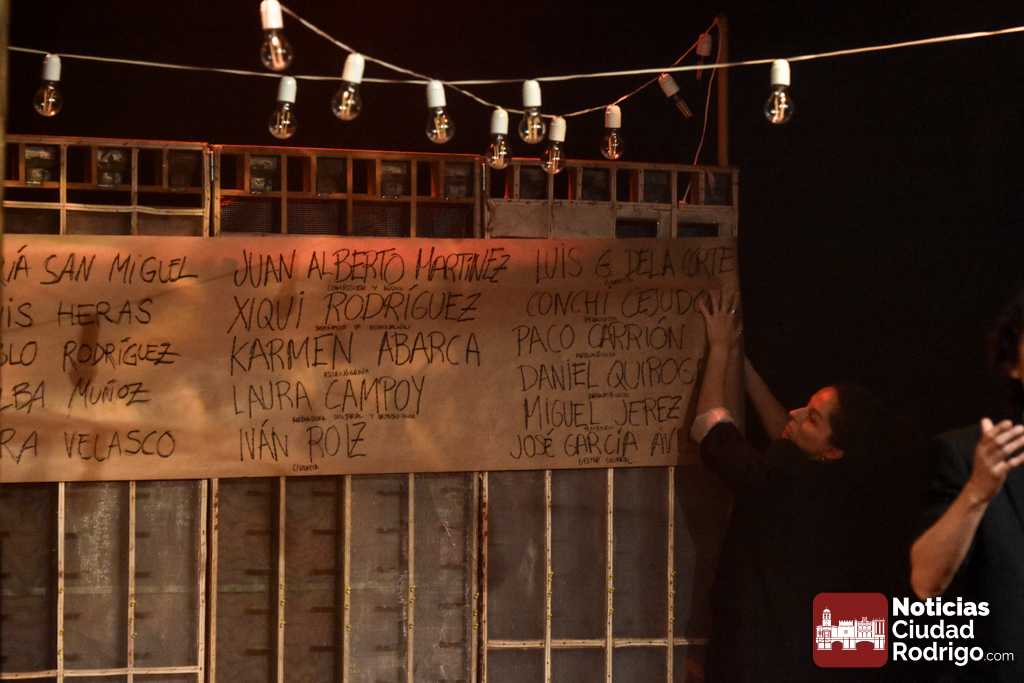 ÍA SAN MIGUEL
IS HERAS
BLO RODRÍGUEZ
LBA MUÑOZ
RA VELASCO
JUAN ALBERTO MARTINEZ
XIQUI RODRÍGUEZ
KARMEN ABARCA
LAURA CAMPOY
IVÁN ROIZ
LUIS G. DE LA CORTE
CONCHI CEJUDO
PACO CARRIÓN
DANIEL QUIROG
MIGUEL JEREZ
JOSÉ GARCÍA
GESTOR CULTURAL
Noticias
Ciudad
Rodrigo.com